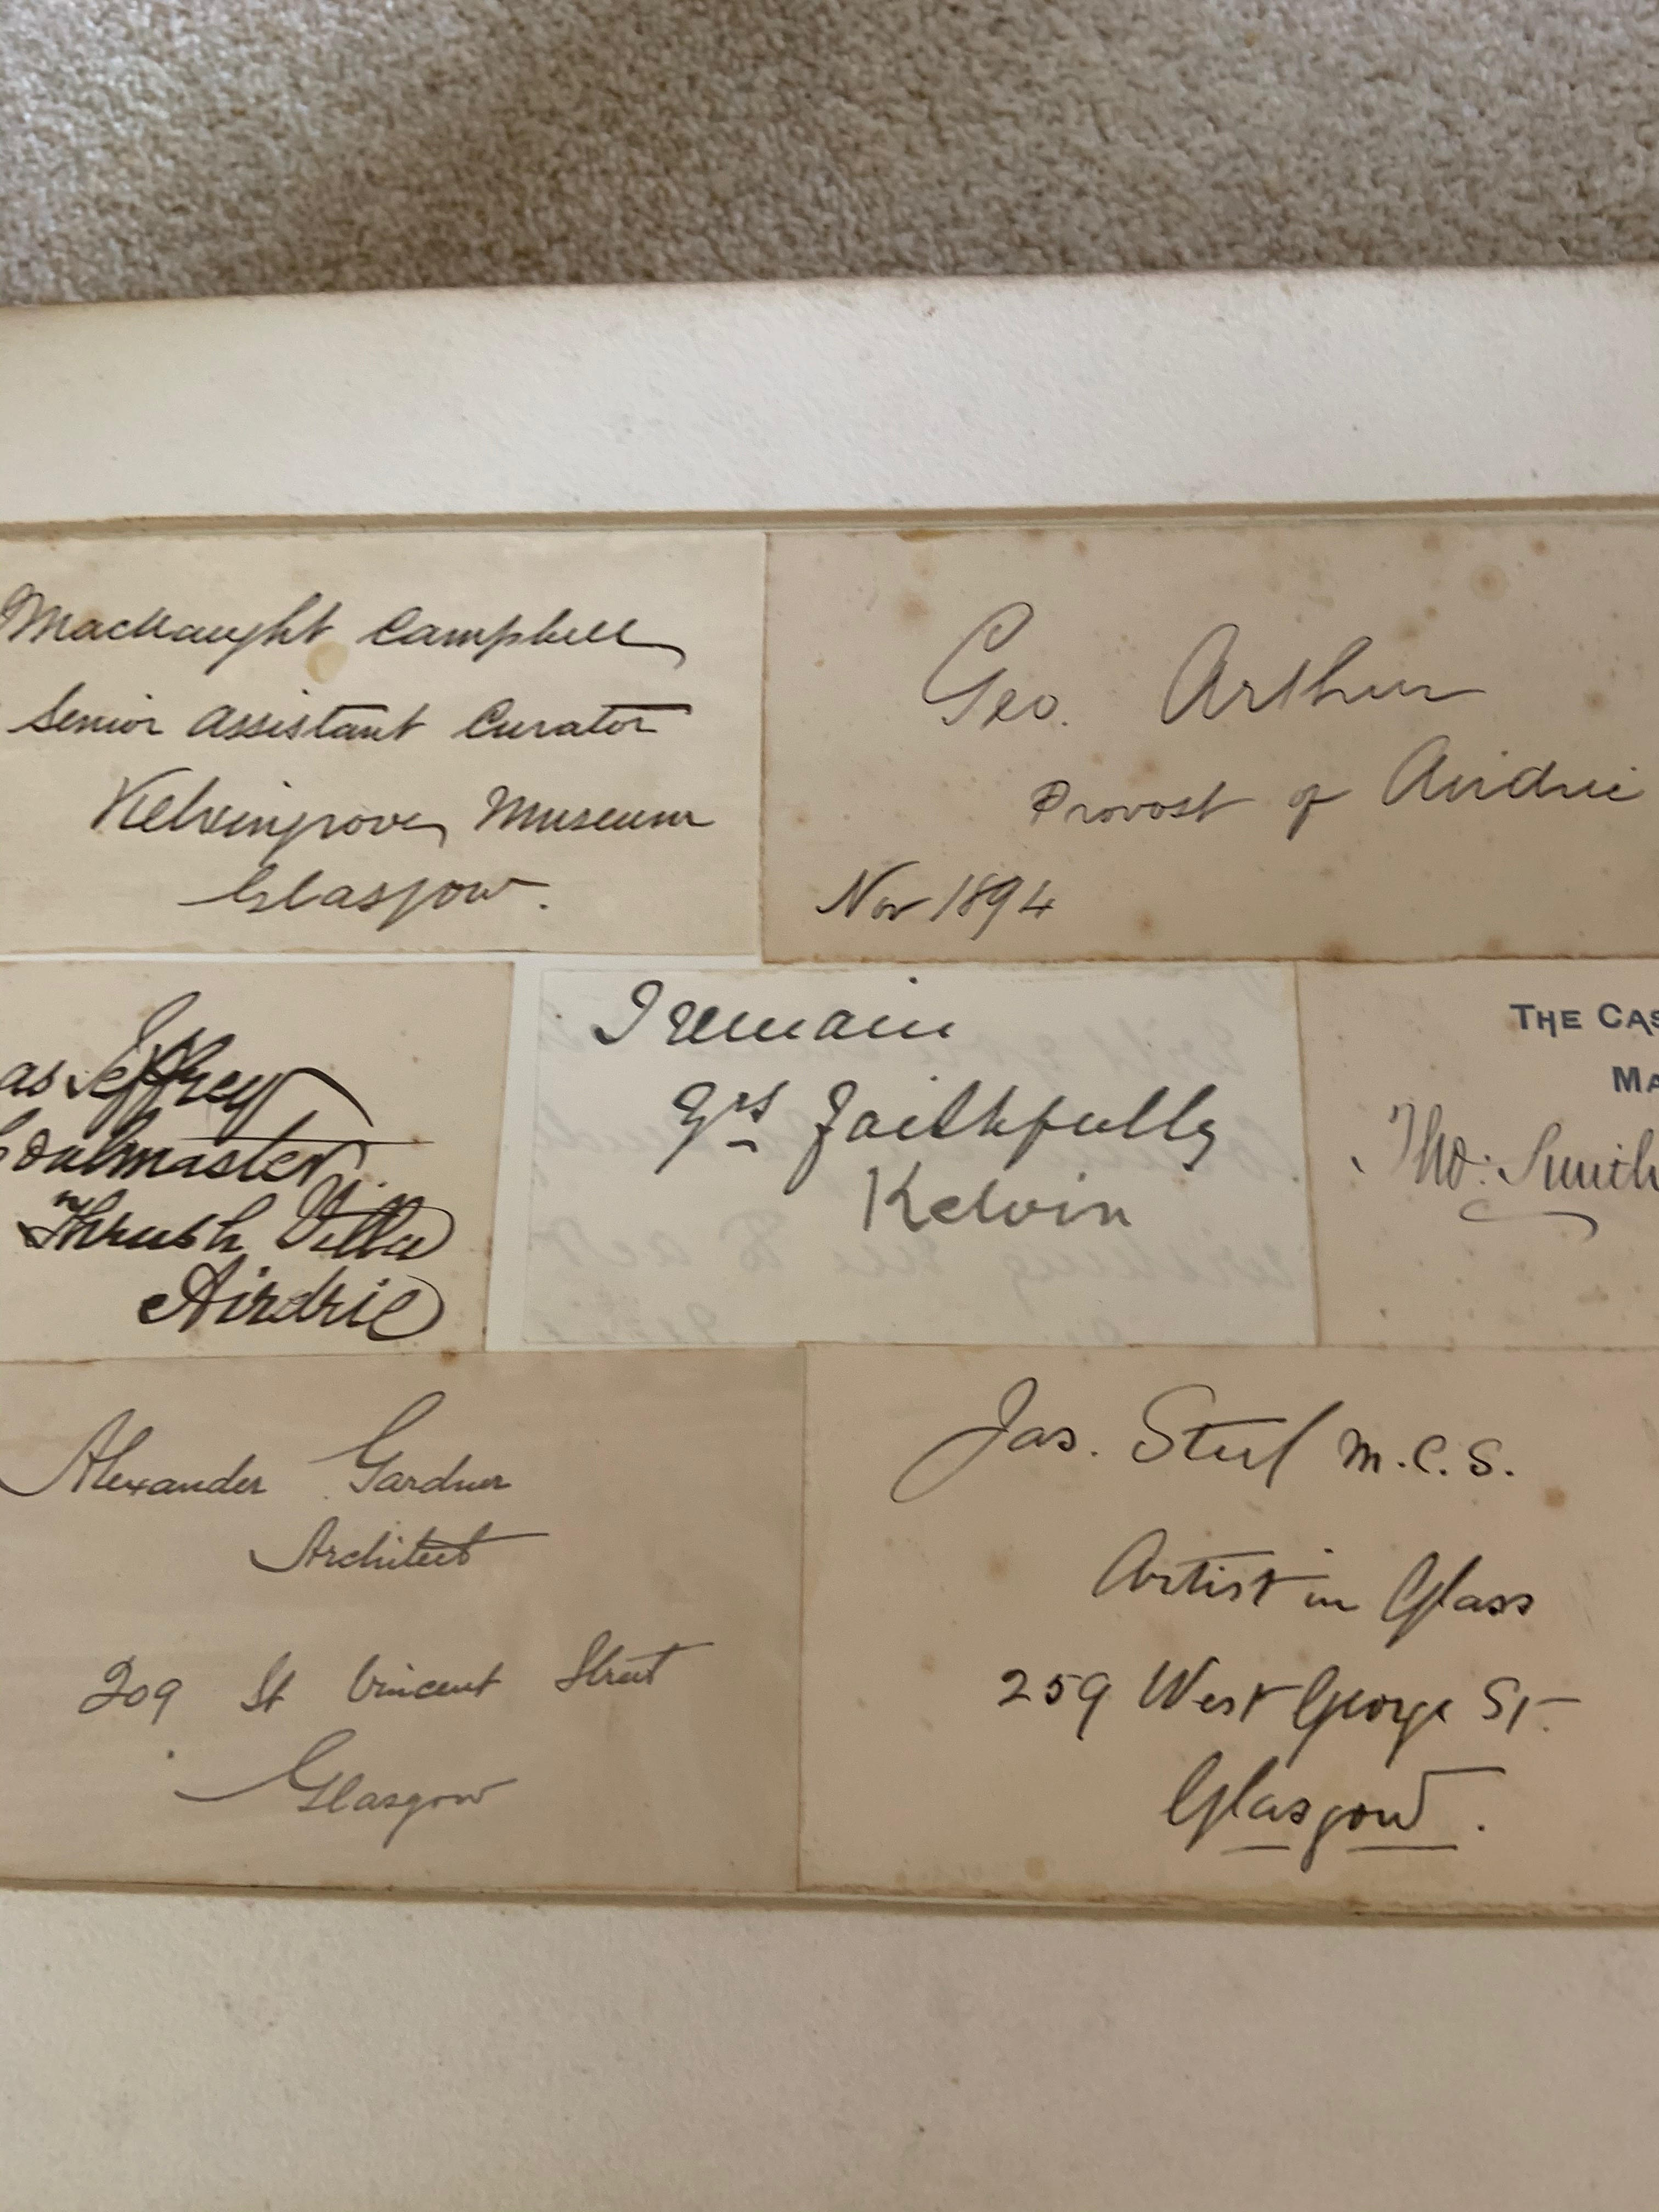 MacNaught Campbell
Senior Assistant Curator
Kelvingrove Museum
Glasgow.
Geo. Arthur
Provost of Airdrie
Nov 1894
as Jeffrey
oolmaster
Thrush Villa
Airdrie
I remain
Yrs faithfully
Kelvin
THE CAS
MA
Tho: Smith
Alexander Gardner
Architect
209 St Vincent Street
Glasgow
Jas. Steel M.C.S.
Artist in Glass
259 West George St.
Glasgow.